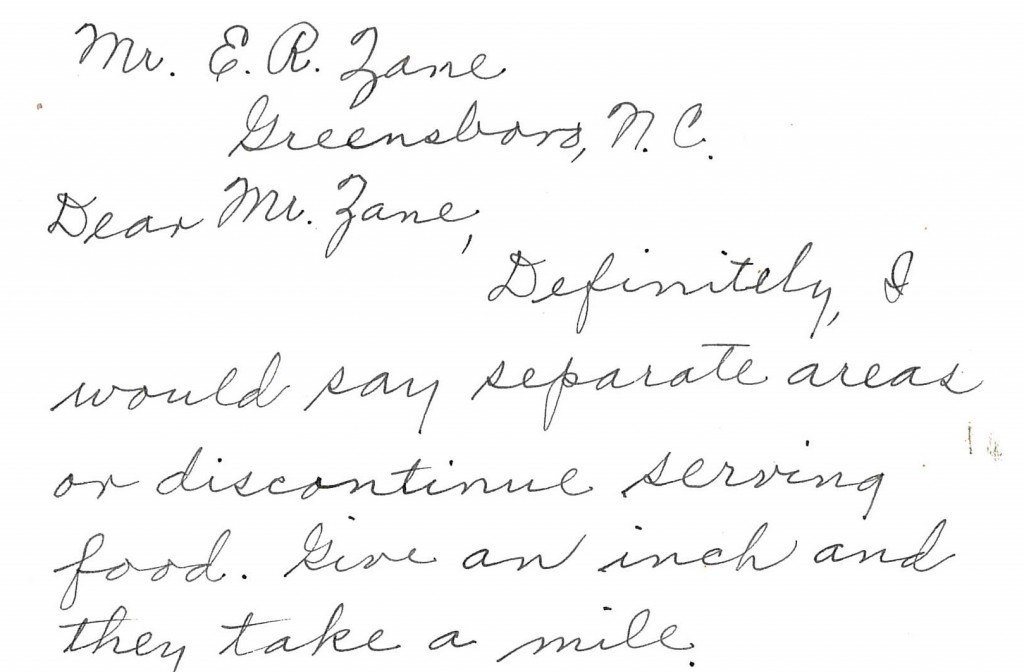 Mr. E. R. Zane
Greensboro, N. C.
Dear Mr. Zane,
Definitely, I
would say separate areas
or discontinue serving
food. Give an inch and
they take a mile.